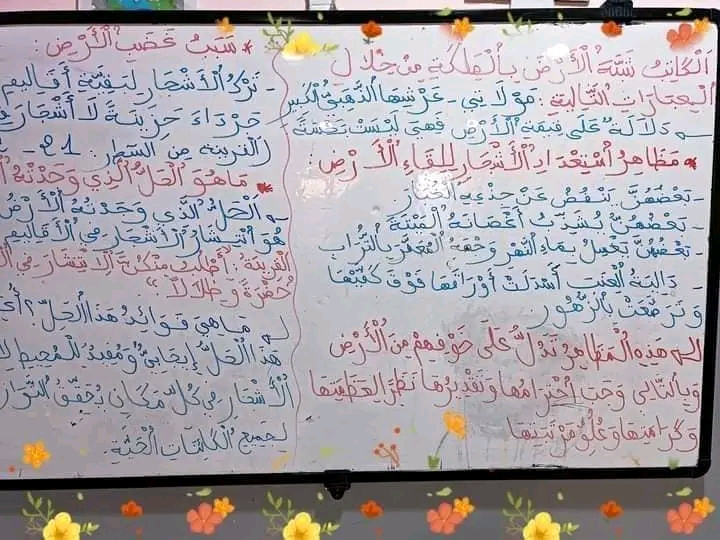 الْكَاتِبُ شَبَّهَ الْأَرْضَ بِالْمَلِكَةِ مِنْ خِلَالِ
الْعِبَارَاتِ التَّالِيَةِ: مَوْلَاتِي - عَرْشِهَا الذَّهَبِيِّ الْكَبِيرِ
دَلَالَةً عَلَى قِيمَةِ الْأَرْضِ فَهِيَ لَيْسَتْ
* مَظَاهِرُ اسْتِعْدَادِ الْأَشْجَارِ لِلِقَاءِ الْأَرْضِ:
- بَعْضُهُنَّ تَنْفُضُ عَنْ جِذْعِهِ الْغُبَارَ
- بَعْضُهُنَّ يُشَذِّبُ أَغْصَانَهُ الْمَيِّتَةَ
- بَعْضُهُنَّ يَغْسِلُ بِمَاءِ النَّهْرِ وَجْهَهُ الْمُعَفَّرَ بِالتُّرَابِ
- دَالِيَةُ الْعِنَبِ أَسْدَلَتْ أَوْرَاقَهَا فَوْقَ كَتِفَيْهَا
وَتَرَصَّعَتْ بِالزُّهُورِ
هَذِهِ الْمَظَاهِرُ تَدُلُّ عَلَى خَوْفِهِمْ مِنَ الْأَرْضِ
وَبِالتَّالِي وَجَبَ احْتِرَامُهَا وَتَقْدِيرُهَا نَظَرًا لِعَظَمَتِهَا
وَكَرَامَتِهَا وَعُلُوِّ مَرْتَبَتِهَا
* سَبَبُ غَضَبِ الْأَرْضِ:
- تَرْكُ الْأَشْجَارِ لِبَقِيَّةِ أَقَالِيمِ
جَرْدَاءَ حَزِينَةً لَا أَشْجَارَ
الْقَرِينَةُ مِنَ السَّطْرِ: 21 -
* مَا هُوَ الْحَلُّ الَّذِي وَجَدَتْهُ
الْحَلُّ الَّذِي وَجَدَتْهُ الْأَرْضُ
هُوَ انْتِشَارُ الْأَشْجَارِ فِي الْأَقَالِيمِ
الْقَرِينَةُ: أَطْلُبُ مِنْكُنَّ الِانْتِشَارَ فِي
خُضْرَةً وَظِلَالًا"
مَا هِيَ فَوَائِدُ هَذَا الْحَلِّ؟
هَذَا الْحَلُّ إِيجَابِيٌّ وَمُفِيدٌ لِلْمُحِيطِ
الْأَشْجَارِ فِي كُلِّ مَكَانٍ يُحَقِّقُ
لِجَمِيعِ الْكَائِنَاتِ الْحَيَّةِ.